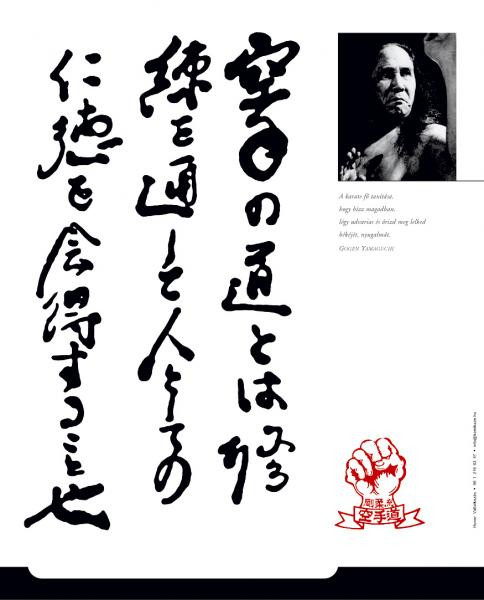 空手の道とは修
練を通して人としての
仁徳を会得すること也
A karate fő tanítása,
hogy bízz magadban,
légy udvarias és őrizd meg lelked
békéjét, nyugalmát.
GOGEN YAMAGUCHI
剛柔
空手道